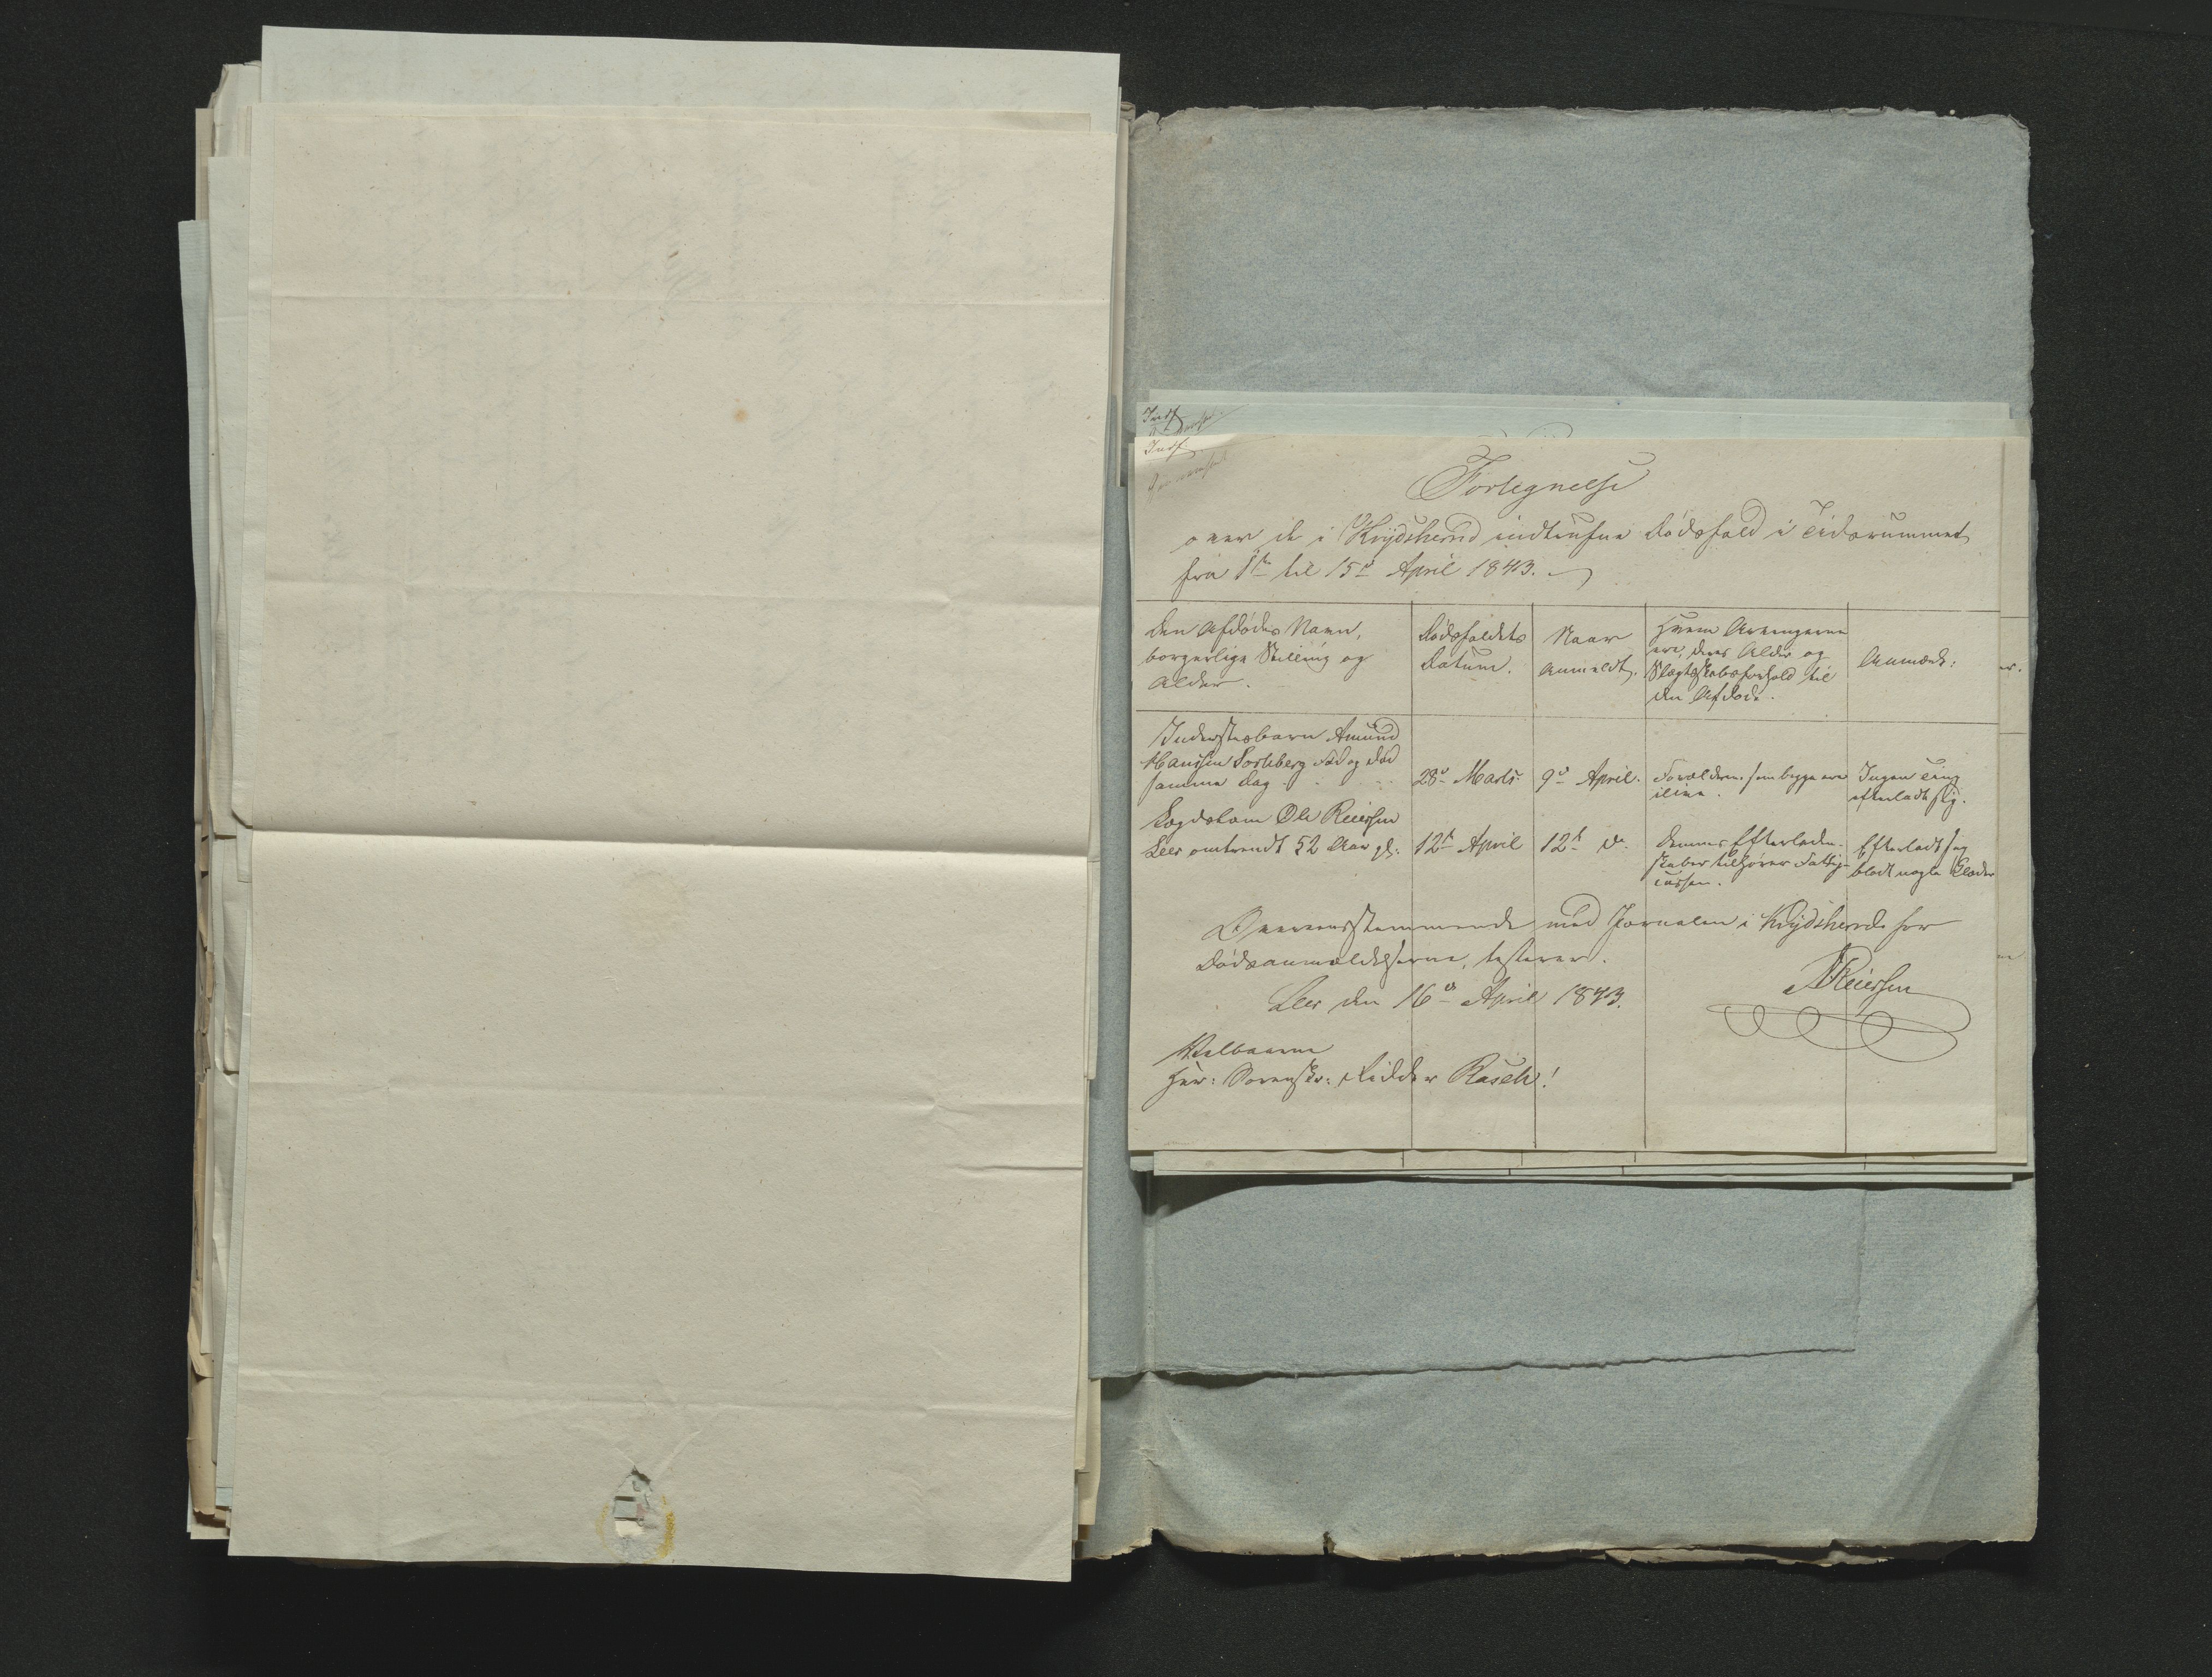 Indf
Indf
Fortegnelse
over de i Krydsherred indtrufne Dødsfald i Tidsrummet
fra 1ste til 15de April 1843.
Den Afdødes Navn,
borgerlige Stilling og
Alder.
Dødsfaldets
Datum.
Naar
anmeldt.
Hvem Arvingerne
ere, deres Alder og
Slægtskabsforhold til
den Afdøde.
Anmærk:
Inderstesbarn Amund
Hanssen Sorteberg død og død
samme Dag
28de Marts
9de April.
Forældrene som begge ere
ilive.
Ingen Ting
efterladt sig.
Lægdslem Ole Reiersen
Leer omtrendt 52 Aar gl:
12te April
12te d.
Dennes Efterladen-
skaber tilhører Fattig-
cassen.
Efterladt sig
blodt nogle Klæder
Overeensstemmende med Jornalen i Krydsherred for
Dødsanmeldelserne, testerer.
Leer den 16de April 1843.
Reiersen
Velbaarne
Herr: Sorenskr: Ridder Rasch!